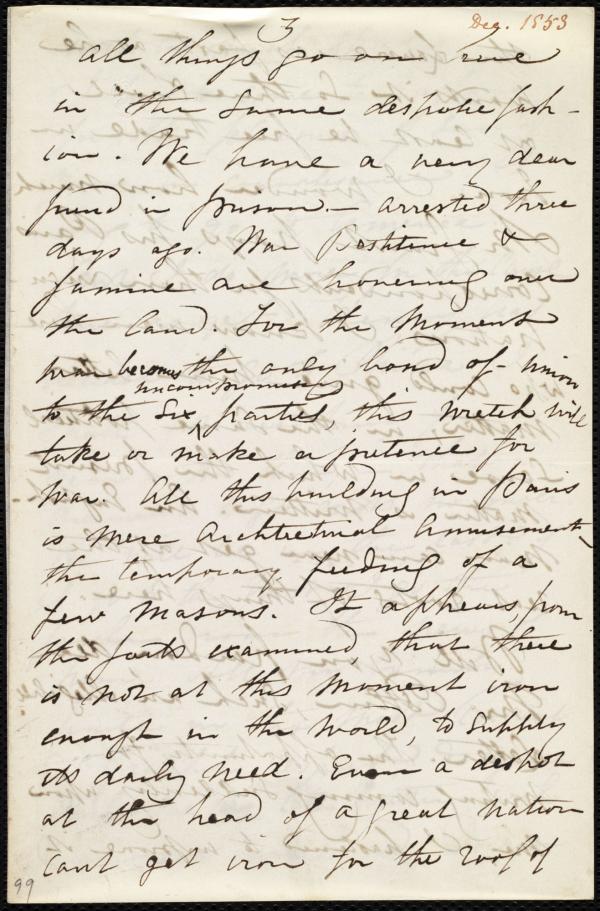 3
Dec. 1853
All things go on here
in the same despotic fash-
ion. We have a very dear
friend in prison. — arrested three
days ago. War Pestilence &
famine are hovering over
the land. For the moment
war becomes the only bond of union
uncompromising
to the six parties, this wretch will
take or make a pretence for
war. All this building in Paris
is mere Architectural Amusement,
the temporary feeding of a
few masons. It appears, from
the facts examined, that there
is not at this moment iron
enough in the world, to supply
its daily need. Even a despot
at the head of a great nation
cant get iron for the roof of
99